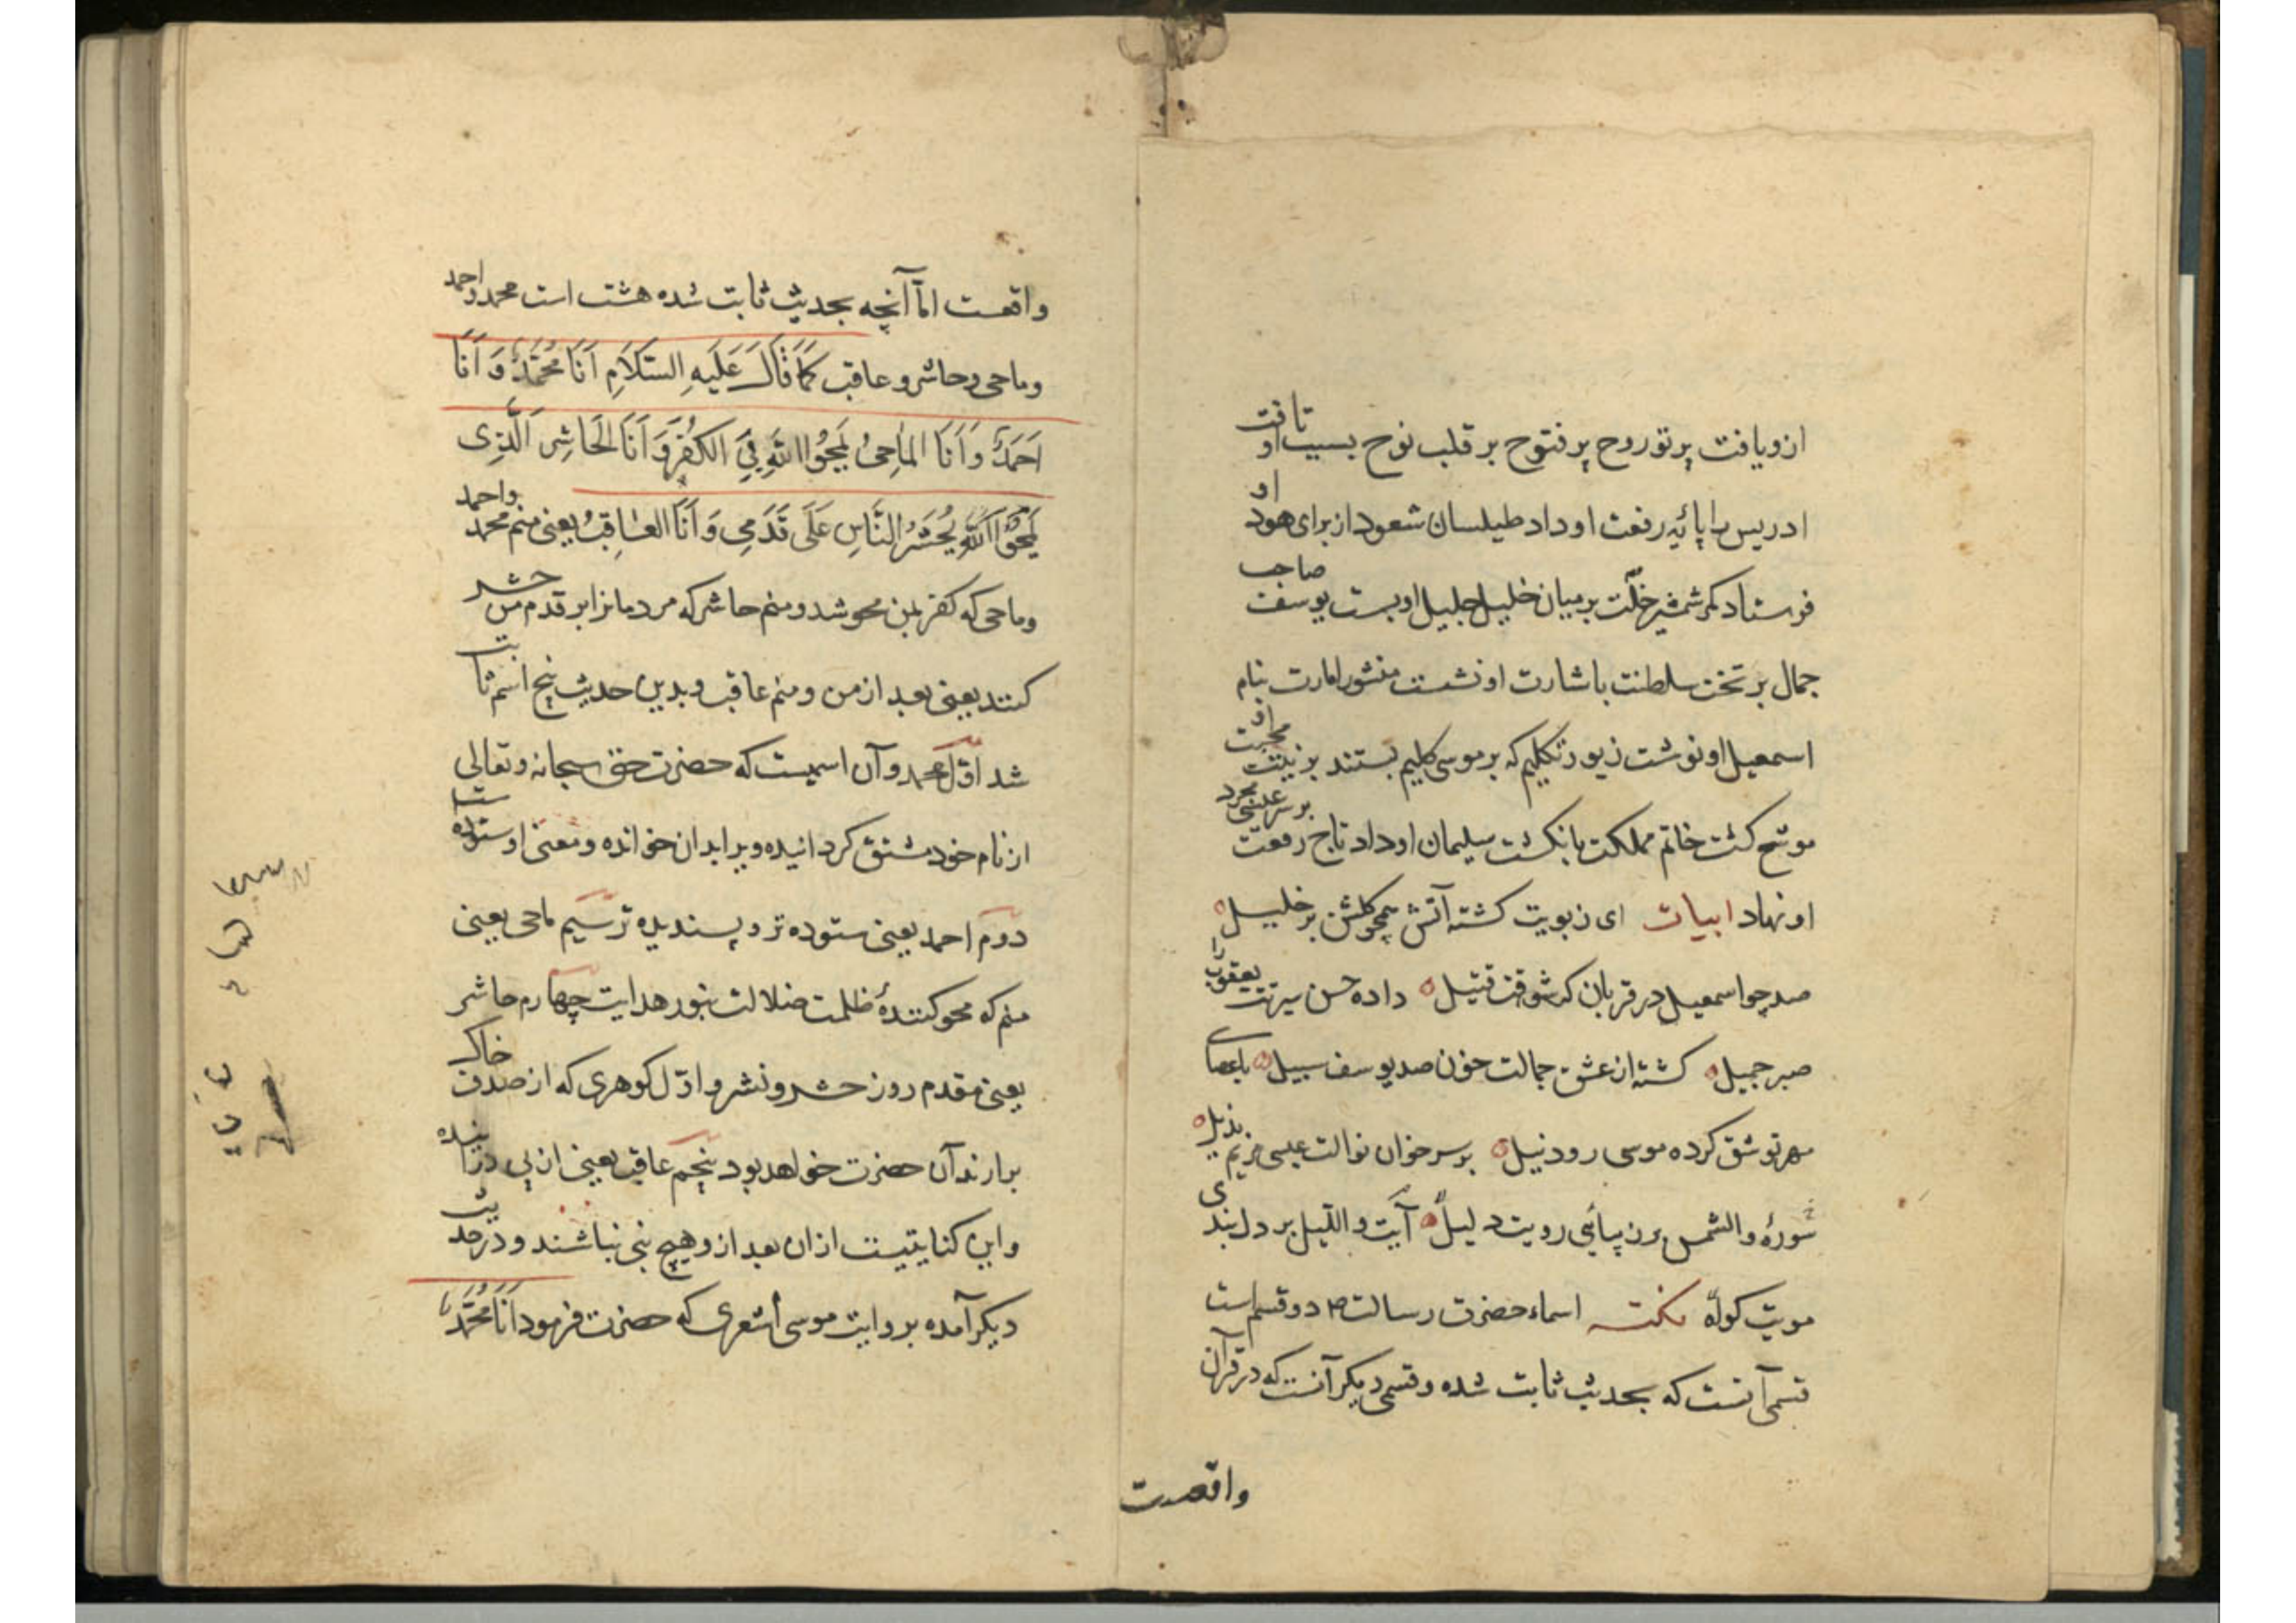 ازو یافت پرتو روح پر فتوح بر قلب نوح بسبب او تافت
ادریس را پایهٔ رفعت او داد طیلسان شعود از برای هود او
فرستاد کمر شمشیر خلّت بر میان خلیل جلیل او بست یوسف صاحب
جمال بر تخت سلطنت باشارت او نشست منشور امارت بنام
اسمعیل او نوشت زیور تکلیم که بر موسی کلیم بستند بزینت محبت او
موشح کشت خاتم مملکت بانکشت سلیمان او داد تاج رفعت بر سر عیسی مجرد
او نهاد ابیات ای زبویت کشته آتش همچو کلشن بر خلیل
صد چو اسمعیل در قربان که شوقت قتیل داده حسن سیرتت یعقوب را
صبر جمیل کشته از عشق جمالت خون صد یوسف سبیل باعصای
مهر تو شق کرده موسی رود نیل بر سر خوان نوالت عیسی مریم نذیل
سورهٔ والشمس بر زیبائی رویت دلیل آیت واللیل بر دل بندی
مویت کواه نکته اسماء حضرت رسالت ص دو قسم است
قسمی آنست که بحدیث ثابت شده و قسمی دیکر آنست که در قرآن
واقعست
واقعست امّا آنچه بحدیث ثابت شده هشت است محمد و احمد
و ماحی و حاشر و عاقب کَمَا قَالَ عَلَیهِ السَّلَامِ اَنَا مُحَمَّدٌ وَ اَنَا
اَحمَدٌ وَ اَنَا المَاحِیُ یَمحُوا اللهِ بِیَ الکُفرَ وَ اَنَا الحَاشِر الَّذِی
یَمحُوا اللهِ یُحشَرُ النَّاسِ عَلَی قَدَمِی وَ اَنَا العَاقِبُ یعنی منم محمد و احمد
و ماحی که کفر بمن محو شد و منم حاشر که مردمانرا بر قدم من حشر
کنند یعنی بعد از من و منم عاقب و بدین حدیث پنج اسم ثابت
شد اوّل محمد و آن اسمیست که حضرت حق سبحانه و تعالی
از نام خود مشتق کردانیده و برا بدان خوانده و معنی او ستوده
دوم احمد یعنی ستوده تر و پسندیده تر سیم ماحی یعنی
منم که محو کنندهٔ ظلمت ضلالت بنور هدایت چهارم حاشر
یعنی مقدم روز حشر و نشر و اوّل کوهری که از صدف خاک
برارند آن حضرت خواهد بود پنجم عاقب یعنی از پی در آینده
و این کنایتیست ازان بعد ازو هیچ نبی نباشند و در حدیث
دیکر آمده بروایت موسی اشعری که حضرت فرمود اَنَا مُحَمَّدٌ